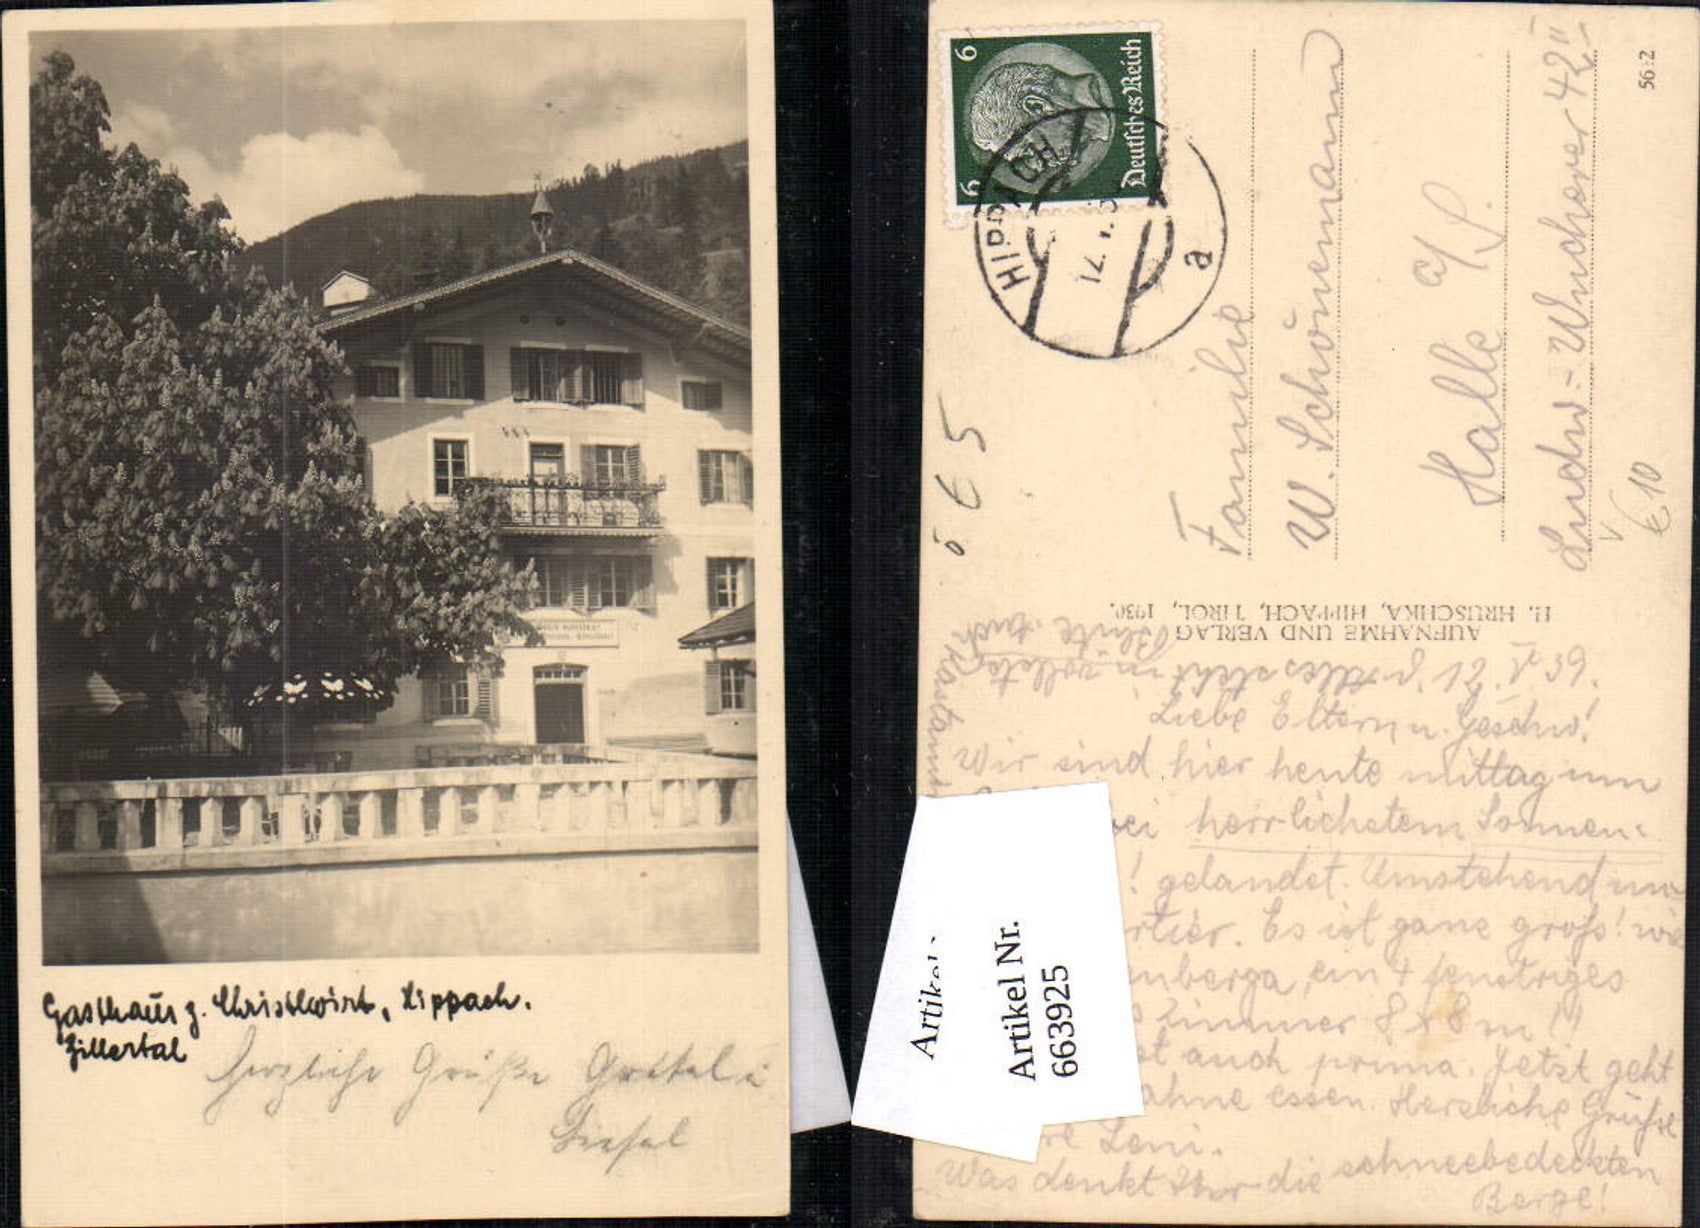 Gasthaus z. Christlwirt, Hippach.
Zillertal
Herzliche Grüße Gretel u
Liesel
6
6
Deutsches Reich
HIPPACH
12. V. 3
a
Familie
W. Schönemann
Halle a/S.
Ludw.-Wucherer 42 II
5612
€ 10
€ 5
AUFNAHME UND VERLAG
H. HRUSCHKA, HIPPACH, TIROL, 1930.
d. 12. V. 39.
Liebe Eltern u. Geschw!
Wir sind hier heute mittag um
bei herrlichstem Sonnen-
! gelandet. Umstehend
rtier. Es ist ganz groß! wie
nberga, ein 4 fenstriges
Zimmer 8 x 8 m!
t auch prima. Jetzt geht
ahne essen. Herzliche Grüße
re Leni.
Was denkt Ihr die schneebedeckten
Berge!
Alles steht in vollster
Blüte. Auch
Kastan
Artikel
Artikel Nr.
6639925